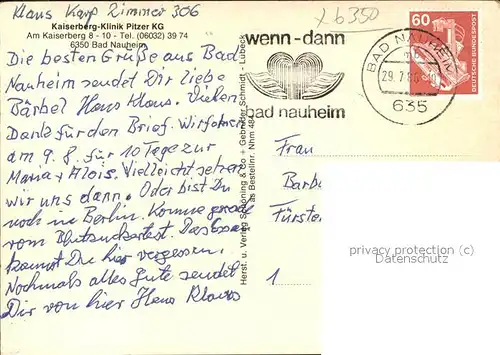 Klaus Karp Zimmer 306
Kaiserberg-Klinik Pitzer KG
Am Kaiserberg 8 - 10 - Tel. (06032) 39 74
6350 Bad Nauheim
Die besten Grüße aus Bad
Nauheim sendet Dir liebe
Bärbel Hans Klaus. Vielen
Dank für den Brief. Wir fahren
am 9. 8. für 10 Tage zur
Maria + Alois. Vielleicht sehen
wir uns dann. Oder bist Du
noch in Berlin. Komme
vom Das Essen
kannst Du hier vergessen.
Nochmals alles Gute sendet
Dir von hier Hans Klaus
x 6350
wenn-dann
bad nauheim
BAD NAUHEIM
29.7.86
635
60
DEUTSCHE BUNDESPOST
Herst. u. Verlag Schöning & Co + Gebrüder Schmidt - Lübeck
Bestellnr. Nhm
Frau
Barb
Fürsten
1
privacy protection (c)
Datenschutz